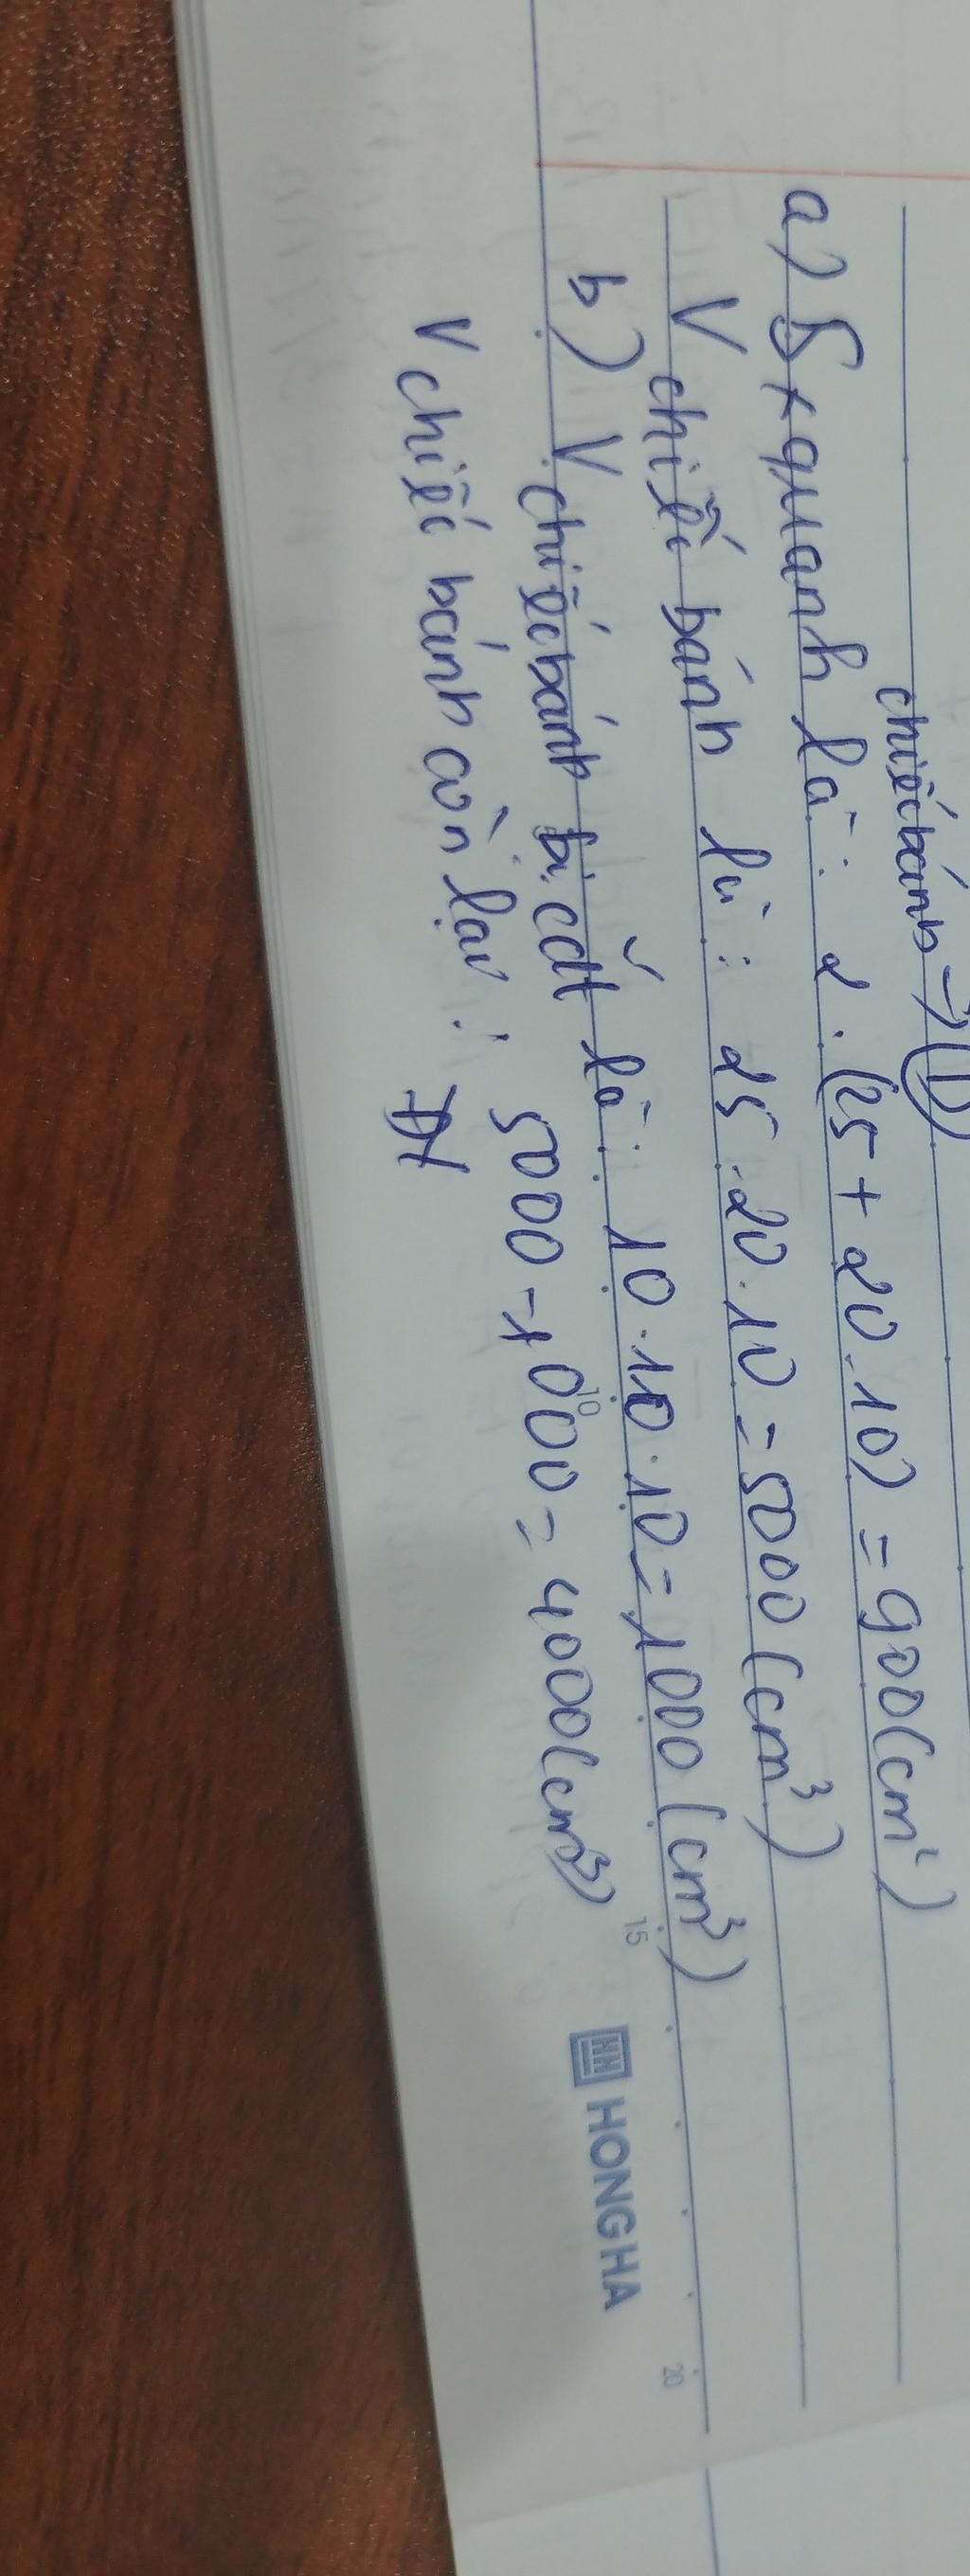 chiếc bánh → (1)
a) S xquanh là : 2 . (25 + 20 . 10) = 900 (cm²)
V chiếc bánh là : 25 . 20 . 10 = 5000 (cm³)
b) V chiếc bánh bị cắt là : 10 . 10 . 10 = 1000 (cm³)
V chiếc bánh còn lại : 5000 - 1000 = 4000 (cm³)
10 15 20
HONG HA